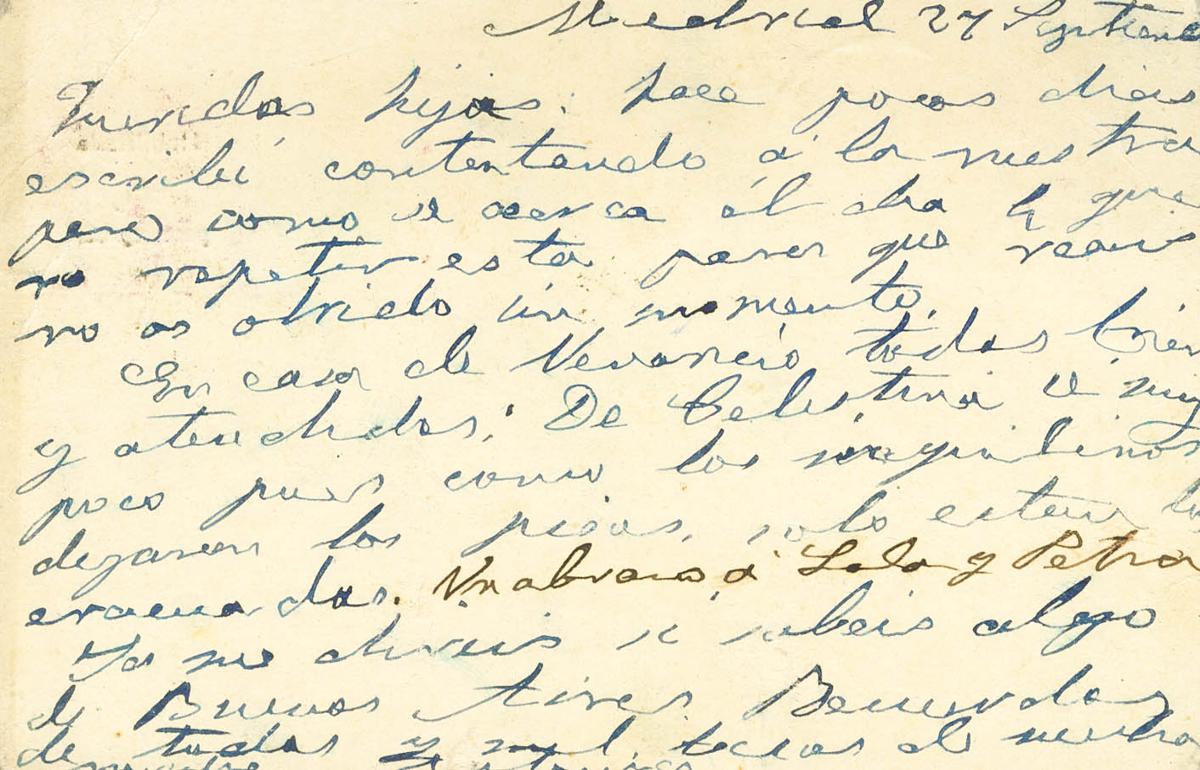 Madrid 27 Septiemb
Queridos hijos: hace pocos dias
escribí contestando á la vuestra
pero como se acerca el dia que
no repetir esta para que veais
no os olvido un momento.
En casa de Venancio todos bien
y atendidos; De Celestina se muy
poco pues como los inquilinos
dejaron los pisos, solo estan los
evacuados. Un abrazo á Lola y Petra
Ya me direis si sabeis algo
de Buenos Aires Recuerdos
de todos y mil besos de vuestra